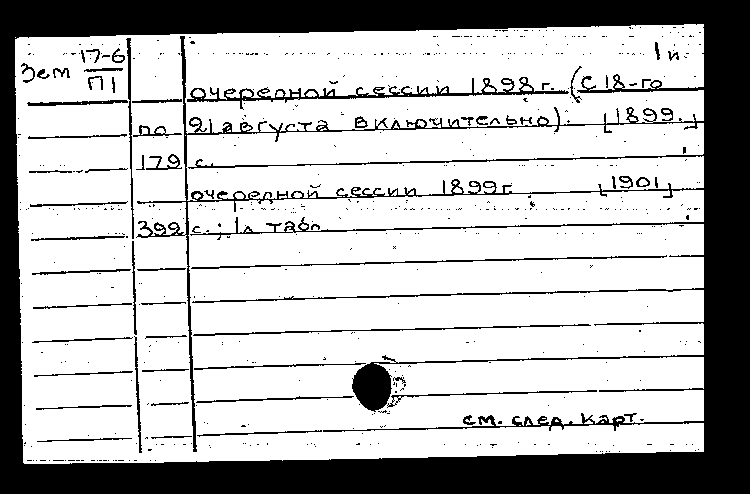 1 п.
Зем 17-6
П1
очередной сессии 1898 г. (С 18-го
по 21 августа включительно). [1899.]
179 с.
очередной сессии 1899 г. [1901]
399 с.; 1л табл
см. след. карт.